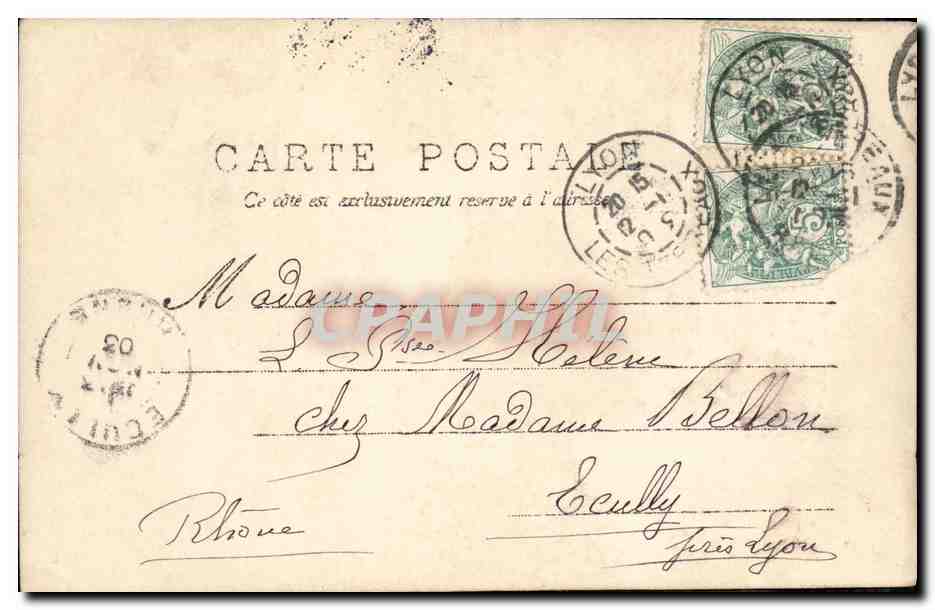 CARTE POSTALE
Ce côté est exclusivement réservé à l'adresse
LYON
LES TERREAUX
5
CPAPHIL
Madame
Helene
chez Madame Bellon
Ecully
près Lyon
Rhône
ECULLY
RHONE
03